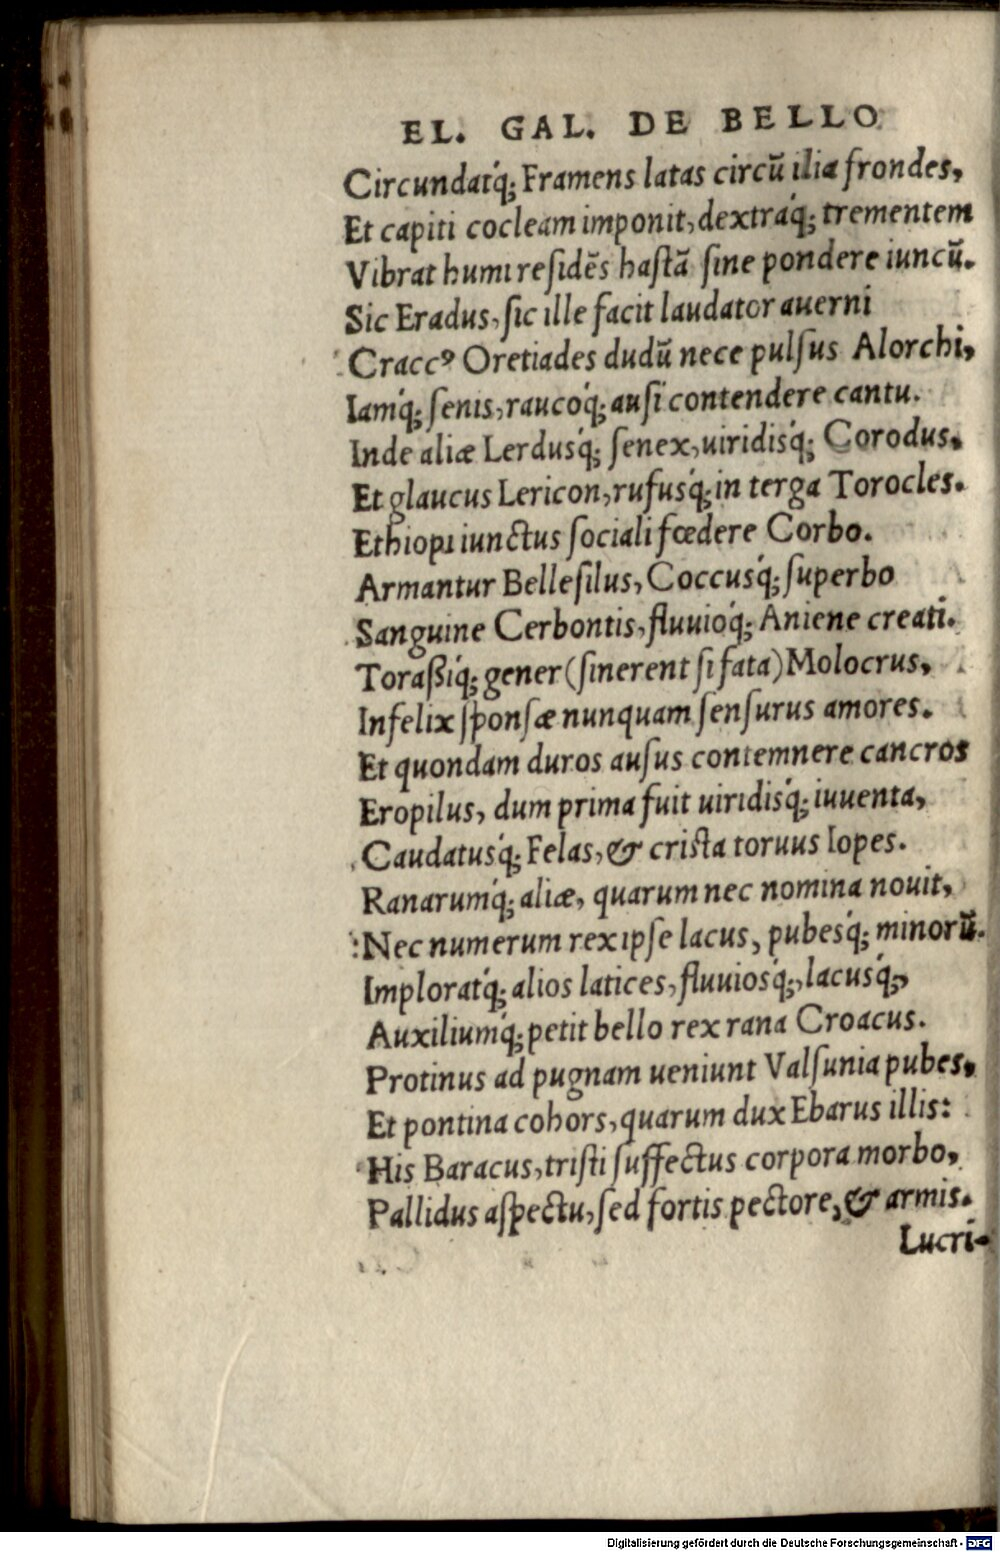 EL. GAL. DE BELLO
Circundatq́; Framens latas circũ ilia frondes,
Et capiti cocleam imponit, dextraq́; trementem
Vibrat humi residẽs hastã sine pondere iuncũ.
Sic Eradus, sic ille facit laudator auerni
Craccꝰ Oretiades dudũ nece pulsus Alorchi,
Iamq́; senis, raucoq́; ausi contendere cantu.
Inde aliæ Lerdusq́; senex, uiridisq́; Corodus,
Et glaucus Lericon, rufusq́; in terga Torocles.
Ethiopi iunctus sociali fœdere Corbo.
Armantur Bellesilus, Coccusq́; superbo
Sanguine Cerbontis, fluuioq́; Aniene creati.
Toraßiq́; gener (sinerent si fata) Molocrus,
Infelix sponsæ nunquam sensurus amores.
Et quondam duros ausus contemnere cancros
Eropilus, dum prima fuit uiridisq́; iuuenta,
Caudatusq́; Felas, & crista toruus Iopes.
Ranarumq́; aliæ, quarum nec nomina nouit,
Nec numerum rex ipse lacus, pubesq́; minorũ.
Imploratq́; alios latices, fluuiosq́;, lacusq́;,
Auxiliumq́; petit bello rex rana Croacus.
Protinus ad pugnam ueniunt Valsunia pubes,
Et pontina cohors, quarum dux Ebarus illis:
His Baracus, tristi suffectus corpora morbo,
Pallidus aspectu, sed fortis pectore, & armis.
Lucri-
Digitalisierung gefördert durch die Deutsche Forschungsgemeinschaft - DFG